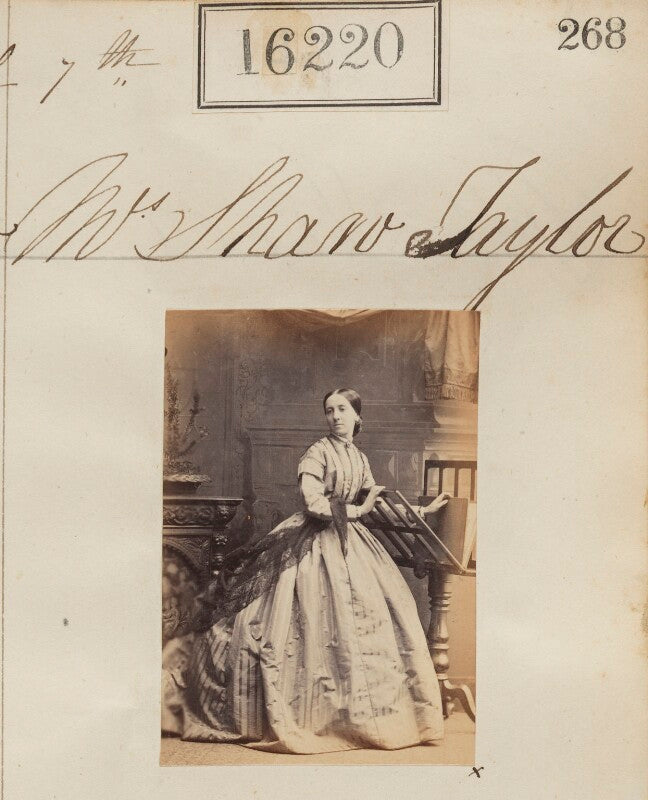 7th
16220
268
Mrs Shaw Taylor
x